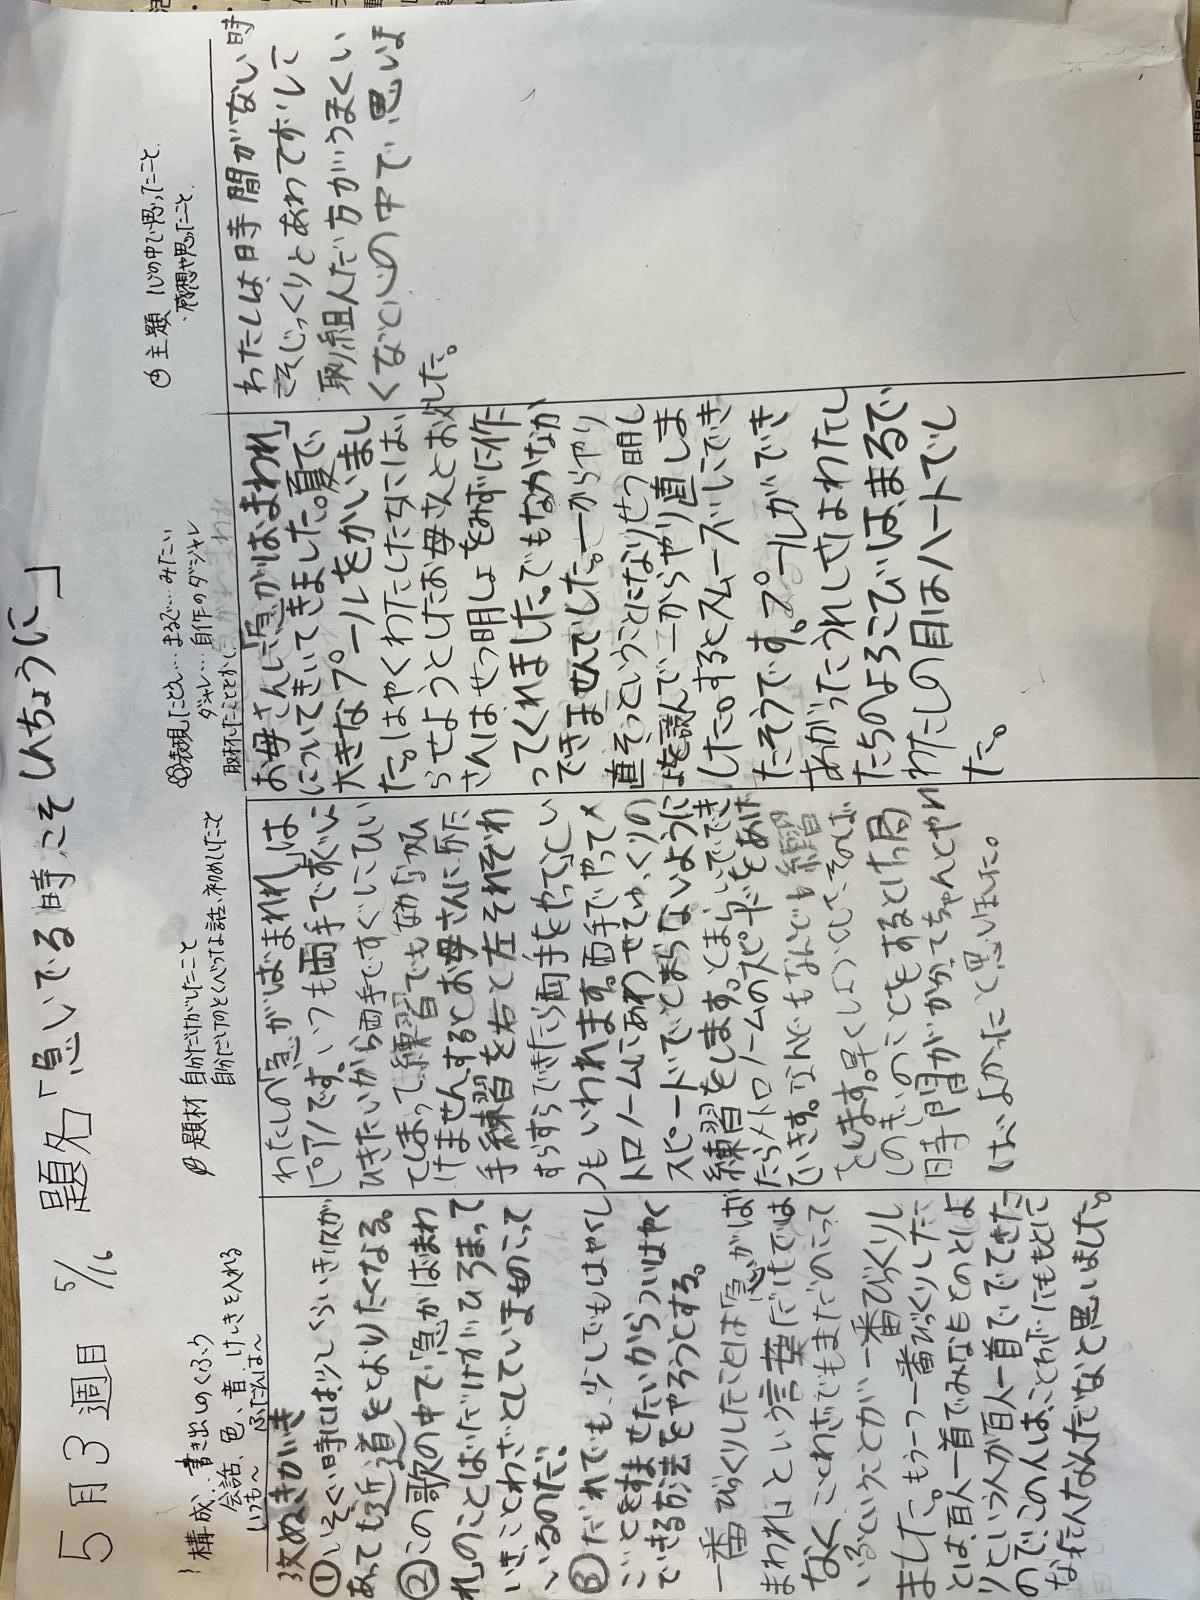 5月3週目 5/16 題名「急いでる時こそしんちょうに」
構成、書き出しのくふう
会話、色、音 けしきを入れる
いつもん ふだんはん
抜ぬきがき
①いそぐ時には少しくらいき収が
あっても近道をとよりたくなる。
②この歌の中で「急がばまわ
れ」のことばだけがひろまって
いき、ことわざとしていまものこって
いるのだ。
③だれでも、少しでもはやくし
ごとをすませたいからついはやく
できる方法をやろうとする。
一番びっくりしたことは「急がば
まわれ」という言葉だけでは
なく、ことわざでもまだのこって
いるということが一番びっくりし
ました。もう一つ一番びっくりしたこ
とは、百人一首でみなもとのとしよ
りという人が百人一首ででてきた
ので、この人は、ことわざにももとに
なった人なんだなと思いました。
題材 自分だけがしたこと
自分だけのとくべつな話、初めしたこと
わたしの「急がばまわれ」は
ピアノです。いつも両手で求いに
ひきたいから両手ですぐにひい
てしまって練習でもなかなかひ
けませんするとお母さんに片た
手練習を右と左それぞれ
すらすらできたら両手をやってとい
つもいわれます。両手でやってメ
トロノームにあわせてゆっくりの
スピードでとまらないように
練習をします。とまらいでできで
たらメトロノームのスピードをあげ
ていきます。なんどもなんども練習
をします。早くしようとして、そのば
しのぎいのことをするとけっ局
時間がかかってちゃんとやれ
ばよかったて思いました。
表現 たとえ…まるで…みたい
ダジャレ…自作のダジャレ
取材したことをかく
お母さんに「急がばまわれ」
についてきいてきました。夏で、
大きなプールをかいまし
た。はやくわたしたちにはい
らせようとしたお母さんとお父
さんはせつ明しょをみずに作
ってくれました。でもなかなか
できませんでした。一からやり
直そっということになりせつ明し
ょを読んで一からやり直しま
した。するとスムーズにでき
たそうです。プールができ
あがったうれしさはわたし
たちのよろこびは、まるで
わたしの目はハートでし
た。
主題 心の中で思ったこと
・感想や思ったこと
わたしは時間がない時
こそじっくりとあわてずして
取り組んだ方がうまくい
くなと心の中で思いま
した。